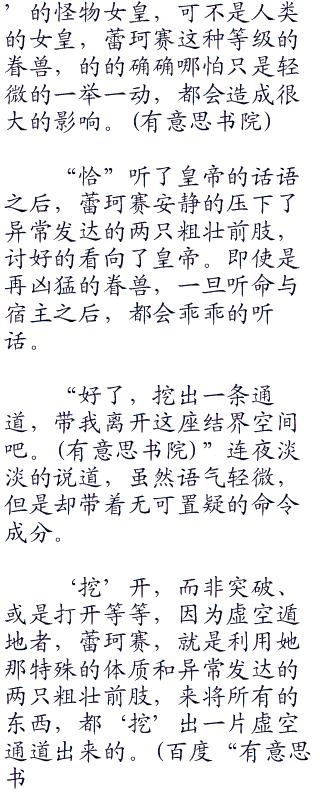 ’的怪物女皇，可不是人类
的女皇，蕾珂赛这种等级的
眷兽，的的确确哪怕只是轻
微的一举一动，都会造成很
大的影响。(有意思书院)
“恰”听了皇帝的话语
之后，蕾珂赛安静的压下了
异常发达的两只粗壮前肢，
讨好的看向了皇帝。即使是
再凶猛的眷兽，一旦听命与
宿主之后，都会乖乖的听
话。
“好了，挖出一条通
道，带我离开这座结界空间
吧。(有意思书院)”连夜淡
淡的说道，虽然语气轻微，
但是却带着无可置疑的命令
成分。
‘挖’开，而非突破、
或是打开等等，因为虚空遁
地者，蕾珂赛，就是利用她
那特殊的体质和异常发达的
两只粗壮前肢，来将所有的
东西，都‘挖’出一片虚空
通道出来的。(百度“有意思
书